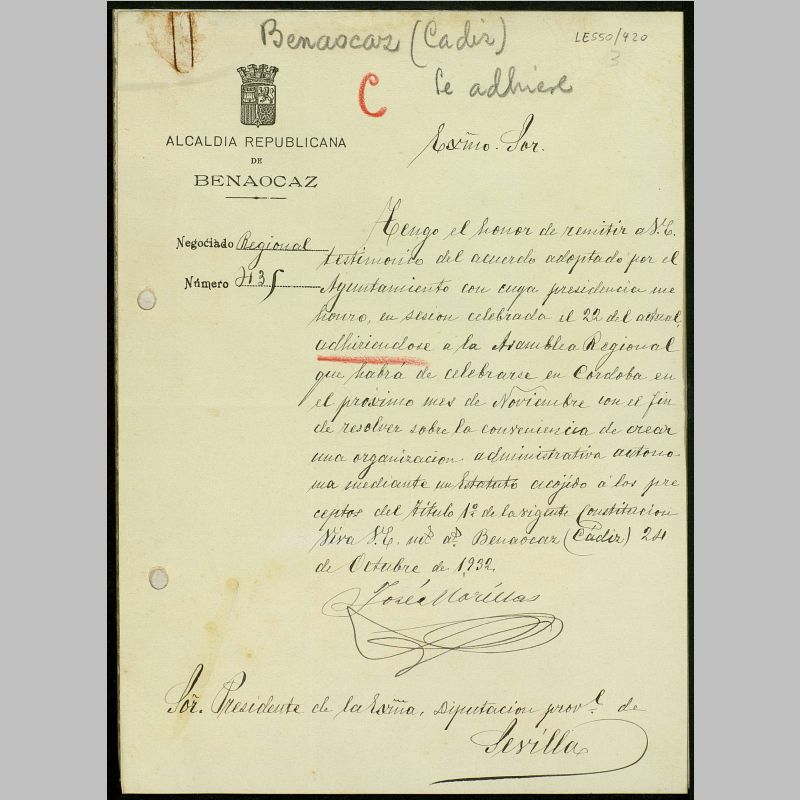 Benaocaz (Cadiz)
LE550/420
3
C
Se adhiere
ALCALDIA REPUBLICANA
DE
BENAOCAZ
Exmo. Sor.
Negociado Regional
Número 435
Tengo el honor de remitir a V.E.
testimonio del acuerdo adoptado por el
Ayuntamiento con cuya presidencia me
honro, en sesion celebrada el 22 del actual,
adhiriendose a la Asamblea Regional
que habrá de celebrarse en Cordoba en
el próximo mes de Noviembre con el fin
de resolver sobre la conveniencia de crear
una organizacion administrativa autono-
ma mediante un Estatuto acojido á los pre
ceptos del Titulo 1º de la vigente Constitucion
Viva V.E. ms. as. Benaocaz (Cádiz) 24
de Octubre de 1,932,
José Morillas
Sor. Presidente de la Exma, Diputacion provl. de
Sevilla